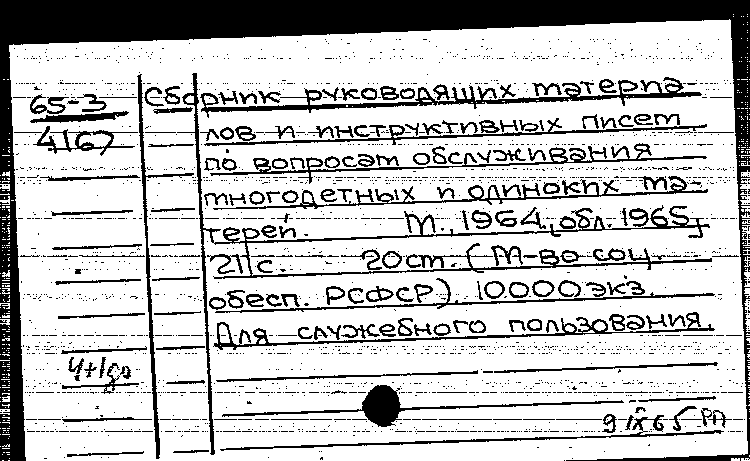 65-3
4167
Сборник руководящих материа-
лов и инструктивных писем
по вопросам обслуживания
многодетных и одиноких ма-
терей. М., 1964, [обл. 1965]
211с. 20см. (М-во соц.
обесп. РСФСР). 10000 экз.
Для служебного пользования.
9 IX 65 РП